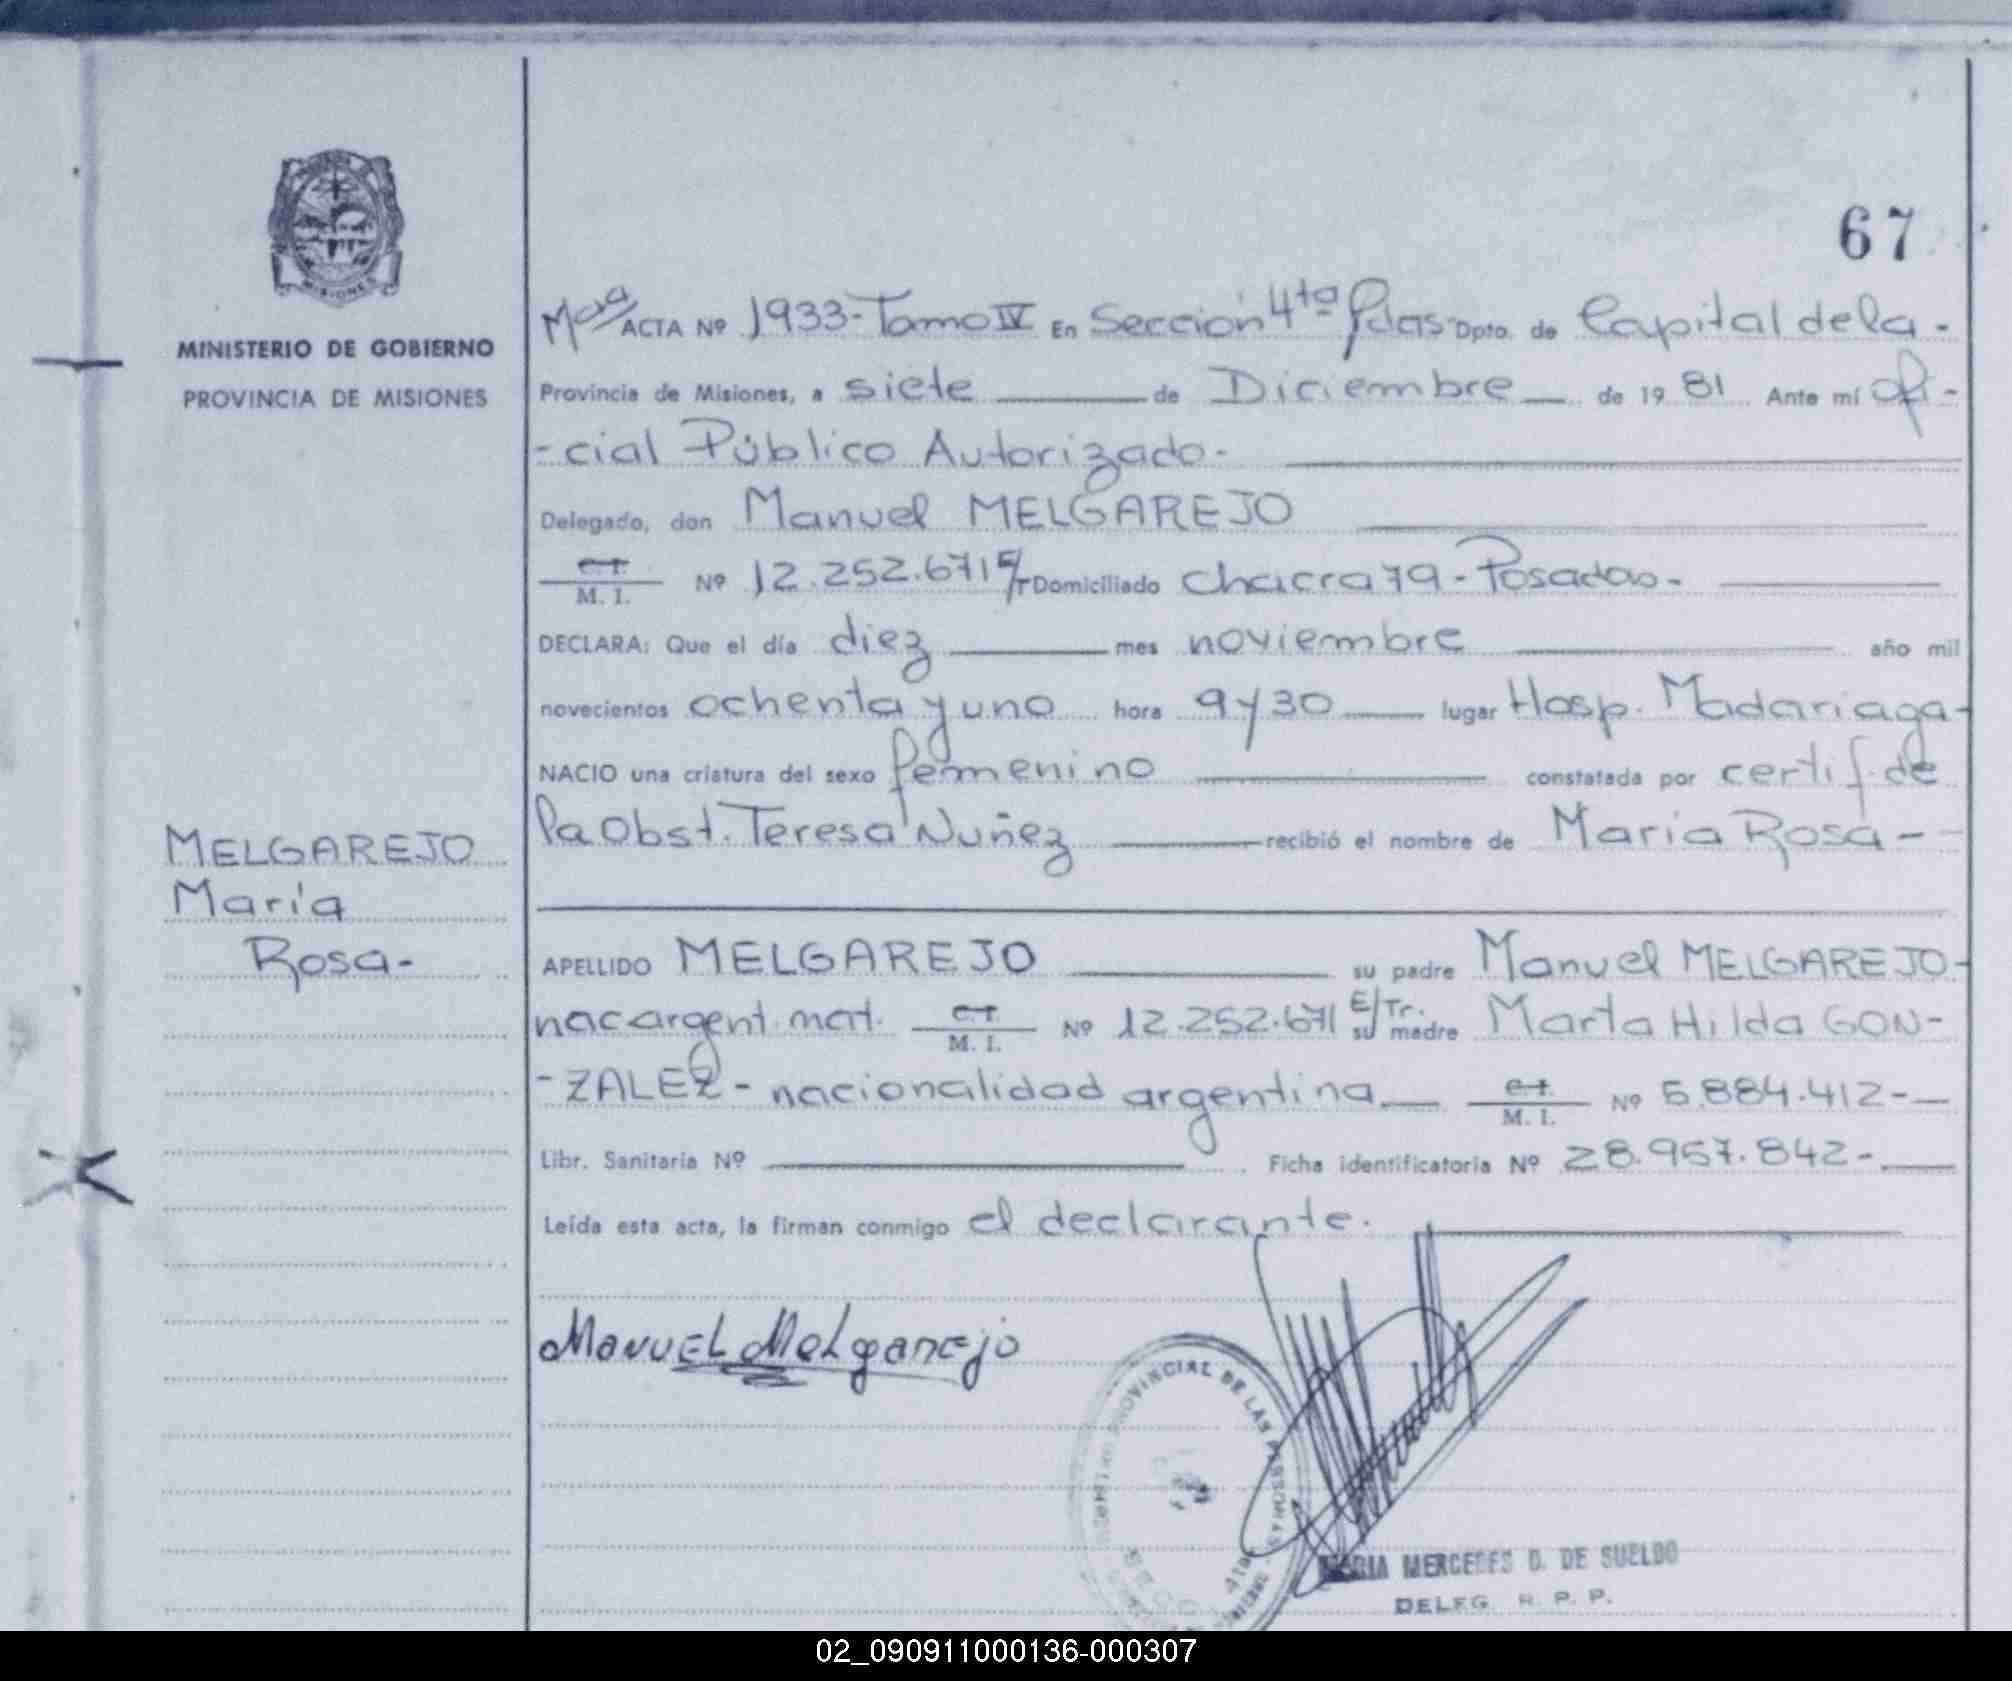 MISIONES
MINISTERIO DE GOBIERNO
PROVINCIA DE MISIONES
MELGAREJO
María
Rosa-
67
ACTA Nº 1933-Tomo IV En Sección 4ta Pdas Dpto. de Capital de la-
Provincia de Misiones, a siete de Diciembre de 19 81 Ante mí ofi-
-cial Público Autorizado-
Delegado, don Manuel MELGAREJO
C.I.
M. I. Nº 12.252.671 E/T Domiciliado chacra 79-Posadas-
DECLARA: Que el día diez mes noviembre año mil
novecientos ochenta y uno hora 9 y 30 lugar Hosp. Madariaga-
NACIO una criatura del sexo femenino constatada por certif. de
la Obst. Teresa Nuñez recibió el nombre de María Rosa-
APELLIDO MELGAREJO su padre Manuel MELGAREJO-
nac argent. mat. C.I.
M. I. Nº 12.252.671 E/Tr. su madre Marta Hilda GON-
-ZALEZ- nacionalidad argentina C.I.
M. I. Nº 5.884.412-
Libr. Sanitaria Nº Ficha identificatoria Nº 28.957.842-
Leída esta acta, la firman conmigo el declarante.
Manuel Melgarejo
PROVINCIAL DE LAS PERSONAS
MARIA MERCEDES D. DE SUELDO
DELEG. R. P. P.
02_090911000136-000307